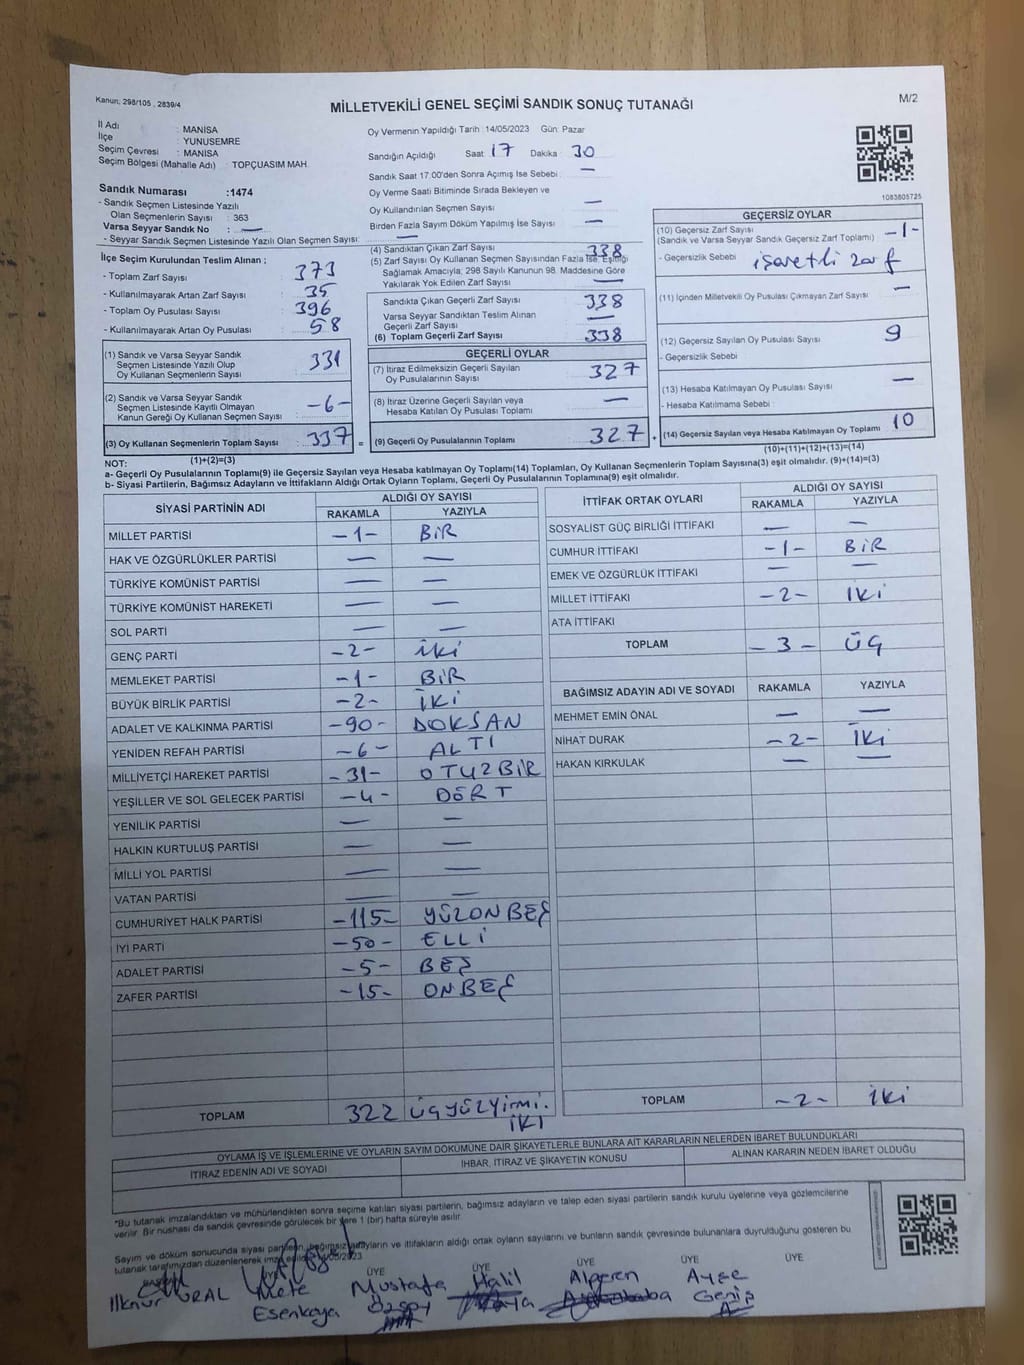 Kanun; 298/105 , 2839/4
MİLLETVEKİLİ GENEL SEÇİMİ SANDIK SONUÇ TUTANAĞI
M/2
İl Adı : MANİSA
İlçe : YUNUSEMRE
Seçim Çevresi : MANİSA
Seçim Bölgesi (Mahalle Adı) : TOPÇUASIM MAH.
Oy Vermenin Yapıldığı Tarih 14/05/2023 Gün: Pazar
Sandığın Açıldığı Saat 17 Dakika 30
Sandık Saat 17:00'den Sonra Açımış İse Sebebi : —
Oy Verme Saati Bitiminde Sırada Bekleyen ve
Oy Kullandırılan Seçmen Sayısı : —
Birden Fazla Sayım Döküm Yapılmış İse Sayısı : —
1083805725
Sandık Numarası :1474
- Sandık Seçmen Listesinde Yazılı
Olan Seçmenlerin Sayısı : 363
Varsa Seyyar Sandık No : —
- Seyyar Sandık Seçmen Listesinde Yazılı Olan Seçmen Sayısı: —
İlçe Seçim Kurulundan Teslim Alınan ;
- Toplam Zarf Sayısı : 373
- Kullanılmayarak Artan Zarf Sayısı : 35
- Toplam Oy Pusulası Sayısı : 396
- Kullanılmayarak Artan Oy Pusulası : 58
(1) Sandık ve Varsa Seyyar Sandık
Seçmen Listesinde Yazılı Olup
Oy Kullanan Seçmenlerin Sayısı : 331
(2) Sandık ve Varsa Seyyar Sandık
Seçmen Listesinde Kayıtlı Olmayan
Kanun Gereği Oy Kullanan Seçmen Sayısı : -6-
(3) Oy Kullanan Seçmenlerin Toplam Sayısı : 337 =
(1)+(2)=(3)
(4) Sandıktan Çıkan Zarf Sayısı 338
(5) Zarf Sayısı Oy Kullanan Seçmen Sayısından Fazla İse, Eşitliği
Sağlamak Amacıyla; 298 Sayılı Kanunun 98. Maddesine Göre
Yakılarak Yok Edilen Zarf Sayısı : —
Sandıkta Çıkan Geçerli Zarf Sayısı : 338
Varsa Seyyar Sandıktan Teslim Alınan
Geçerli Zarf Sayısı : —
(6) Toplam Geçerli Zarf Sayısı : 338
GEÇERLİ OYLAR
(7) İtiraz Edilmeksizin Geçerli Sayılan
Oy Pusulalarının Sayısı : 327
(8) İtiraz Üzerine Geçerli Sayılan veya
Hesaba Katılan Oy Pusulası Toplamı : —
(9) Geçerli Oy Pusulalarının Toplamı : 327 +
GEÇERSİZ OYLAR
(10) Geçersiz Zarf Sayısı
(Sandık ve Varsa Seyyar Sandık Geçersiz Zarf Toplamı) -1-
- Geçersizlik Sebebi : işaretli zarf
(11) İçinden Milletvekili Oy Pusulası Çıkmayan Zarf Sayısı : —
(12) Geçersiz Sayılan Oy Pusulası Sayısı : 9
- Geçersizlik Sebebi
(13) Hesaba Katılmayan Oy Pusulası Sayısı : —
- Hesaba Katılmama Sebebi :
(14) Geçersiz Sayılan veya Hesaba Katılmayan Oy Toplamı 10
(10)+(11)+(12)+(13)=(14)
NOT:
a- Geçerli Oy Pusulalarının Toplamı(9) ile Geçersiz Sayılan veya Hesaba katılmayan Oy Toplamı(14) Toplamları, Oy Kullanan Seçmenlerin Toplam Sayısına(3) eşit olmalıdır. (9)+(14)=(3)
b- Siyasi Partilerin, Bağımsız Adayların ve İttifakların Aldığı Ortak Oyların Toplamı, Geçerli Oy Pusulalarının Toplamına(9) eşit olmalıdır.
SİYASİ PARTİNİN ADI ALDIĞI OY SAYISI
RAKAMLA YAZIYLA
MİLLET PARTİSİ -1- BİR
HAK VE ÖZGÜRLÜKLER PARTİSİ — —
TÜRKİYE KOMÜNİST PARTİSİ — —
TÜRKİYE KOMÜNİST HAREKETİ — —
SOL PARTİ — —
GENÇ PARTİ -2- iki
MEMLEKET PARTİSİ -1- BİR
BÜYÜK BİRLİK PARTİSİ -2- İKİ
ADALET VE KALKINMA PARTİSİ -90- DOKSAN
YENİDEN REFAH PARTİSİ -6- ALTI
MİLLİYETÇİ HAREKET PARTİSİ -31- OTUZBİR
YEŞİLLER VE SOL GELECEK PARTİSİ -4- DÖRT
YENİLİK PARTİSİ — —
HALKIN KURTULUŞ PARTİSİ — —
MİLLİ YOL PARTİSİ — —
VATAN PARTİSİ — —
CUMHURİYET HALK PARTİSİ -115- YÜZONBEŞ
İYİ PARTİ -50- ELLİ
ADALET PARTİSİ -5- BEŞ
ZAFER PARTİSİ -15- ONBEŞ
TOPLAM 322 ÜÇYÜZYirmi.
İKİ
İTTİFAK ORTAK OYLARI ALDIĞI OY SAYISI
RAKAMLA YAZIYLA
SOSYALİST GÜÇ BİRLİĞİ İTTİFAKI — —
CUMHUR İTTİFAKI -1- BİR
EMEK VE ÖZGÜRLÜK İTTİFAKI — —
MİLLET İTTİFAKI -2- İKi
ATA İTTİFAKI
TOPLAM -3- ÜÇ
BAĞIMSIZ ADAYIN ADI VE SOYADI RAKAMLA YAZIYLA
MEHMET EMİN ÖNAL — —
NİHAT DURAK -2- İKi
HAKAN KIRKULAK — —
TOPLAM -2- İKi
OYLAMA İŞ VE İŞLEMLERİNE VE OYLARIN SAYIM DÖKÜMÜNE DAİR ŞİKAYETLERLE BUNLARA AİT KARARLARIN NELERDEN İBARET BULUNDUKLARI
İTİRAZ EDENİN ADI VE SOYADI İHBAR, İTİRAZ VE ŞİKAYETİN KONUSU ALINAN KARARIN NEDEN İBARET OLDUĞU
*Bu tutanak imzalandıktan ve mühürlendikten sonra seçime katılan siyasi partilerin, bağımsız adayların ve talep eden siyasi partilerin sandık kurulu üyelerine veya gözlemcilerine
verilir. Bir nüshası da sandık çevresinde görülecek bir yere 1 (bir) hafta süreyle asılır.
Sayım ve döküm sonucunda siyasi partilerin, bağımsız adayların ve ittifakların aldığı ortak oyların sayılarını ve bunların sandık çevresinde bulunanlara duyrulduğunu gösteren bu
tutanak tarafımızdan düzenlenerek
ÜYE ÜYE ÜYE ÜYE ÜYE
İlknur URAL Mete Esenkaya Mustafa Özsoy Halil Kaya Alperen Ayşe Geniş